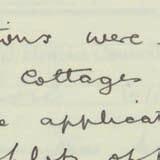 ions were
Cottages
e applicat